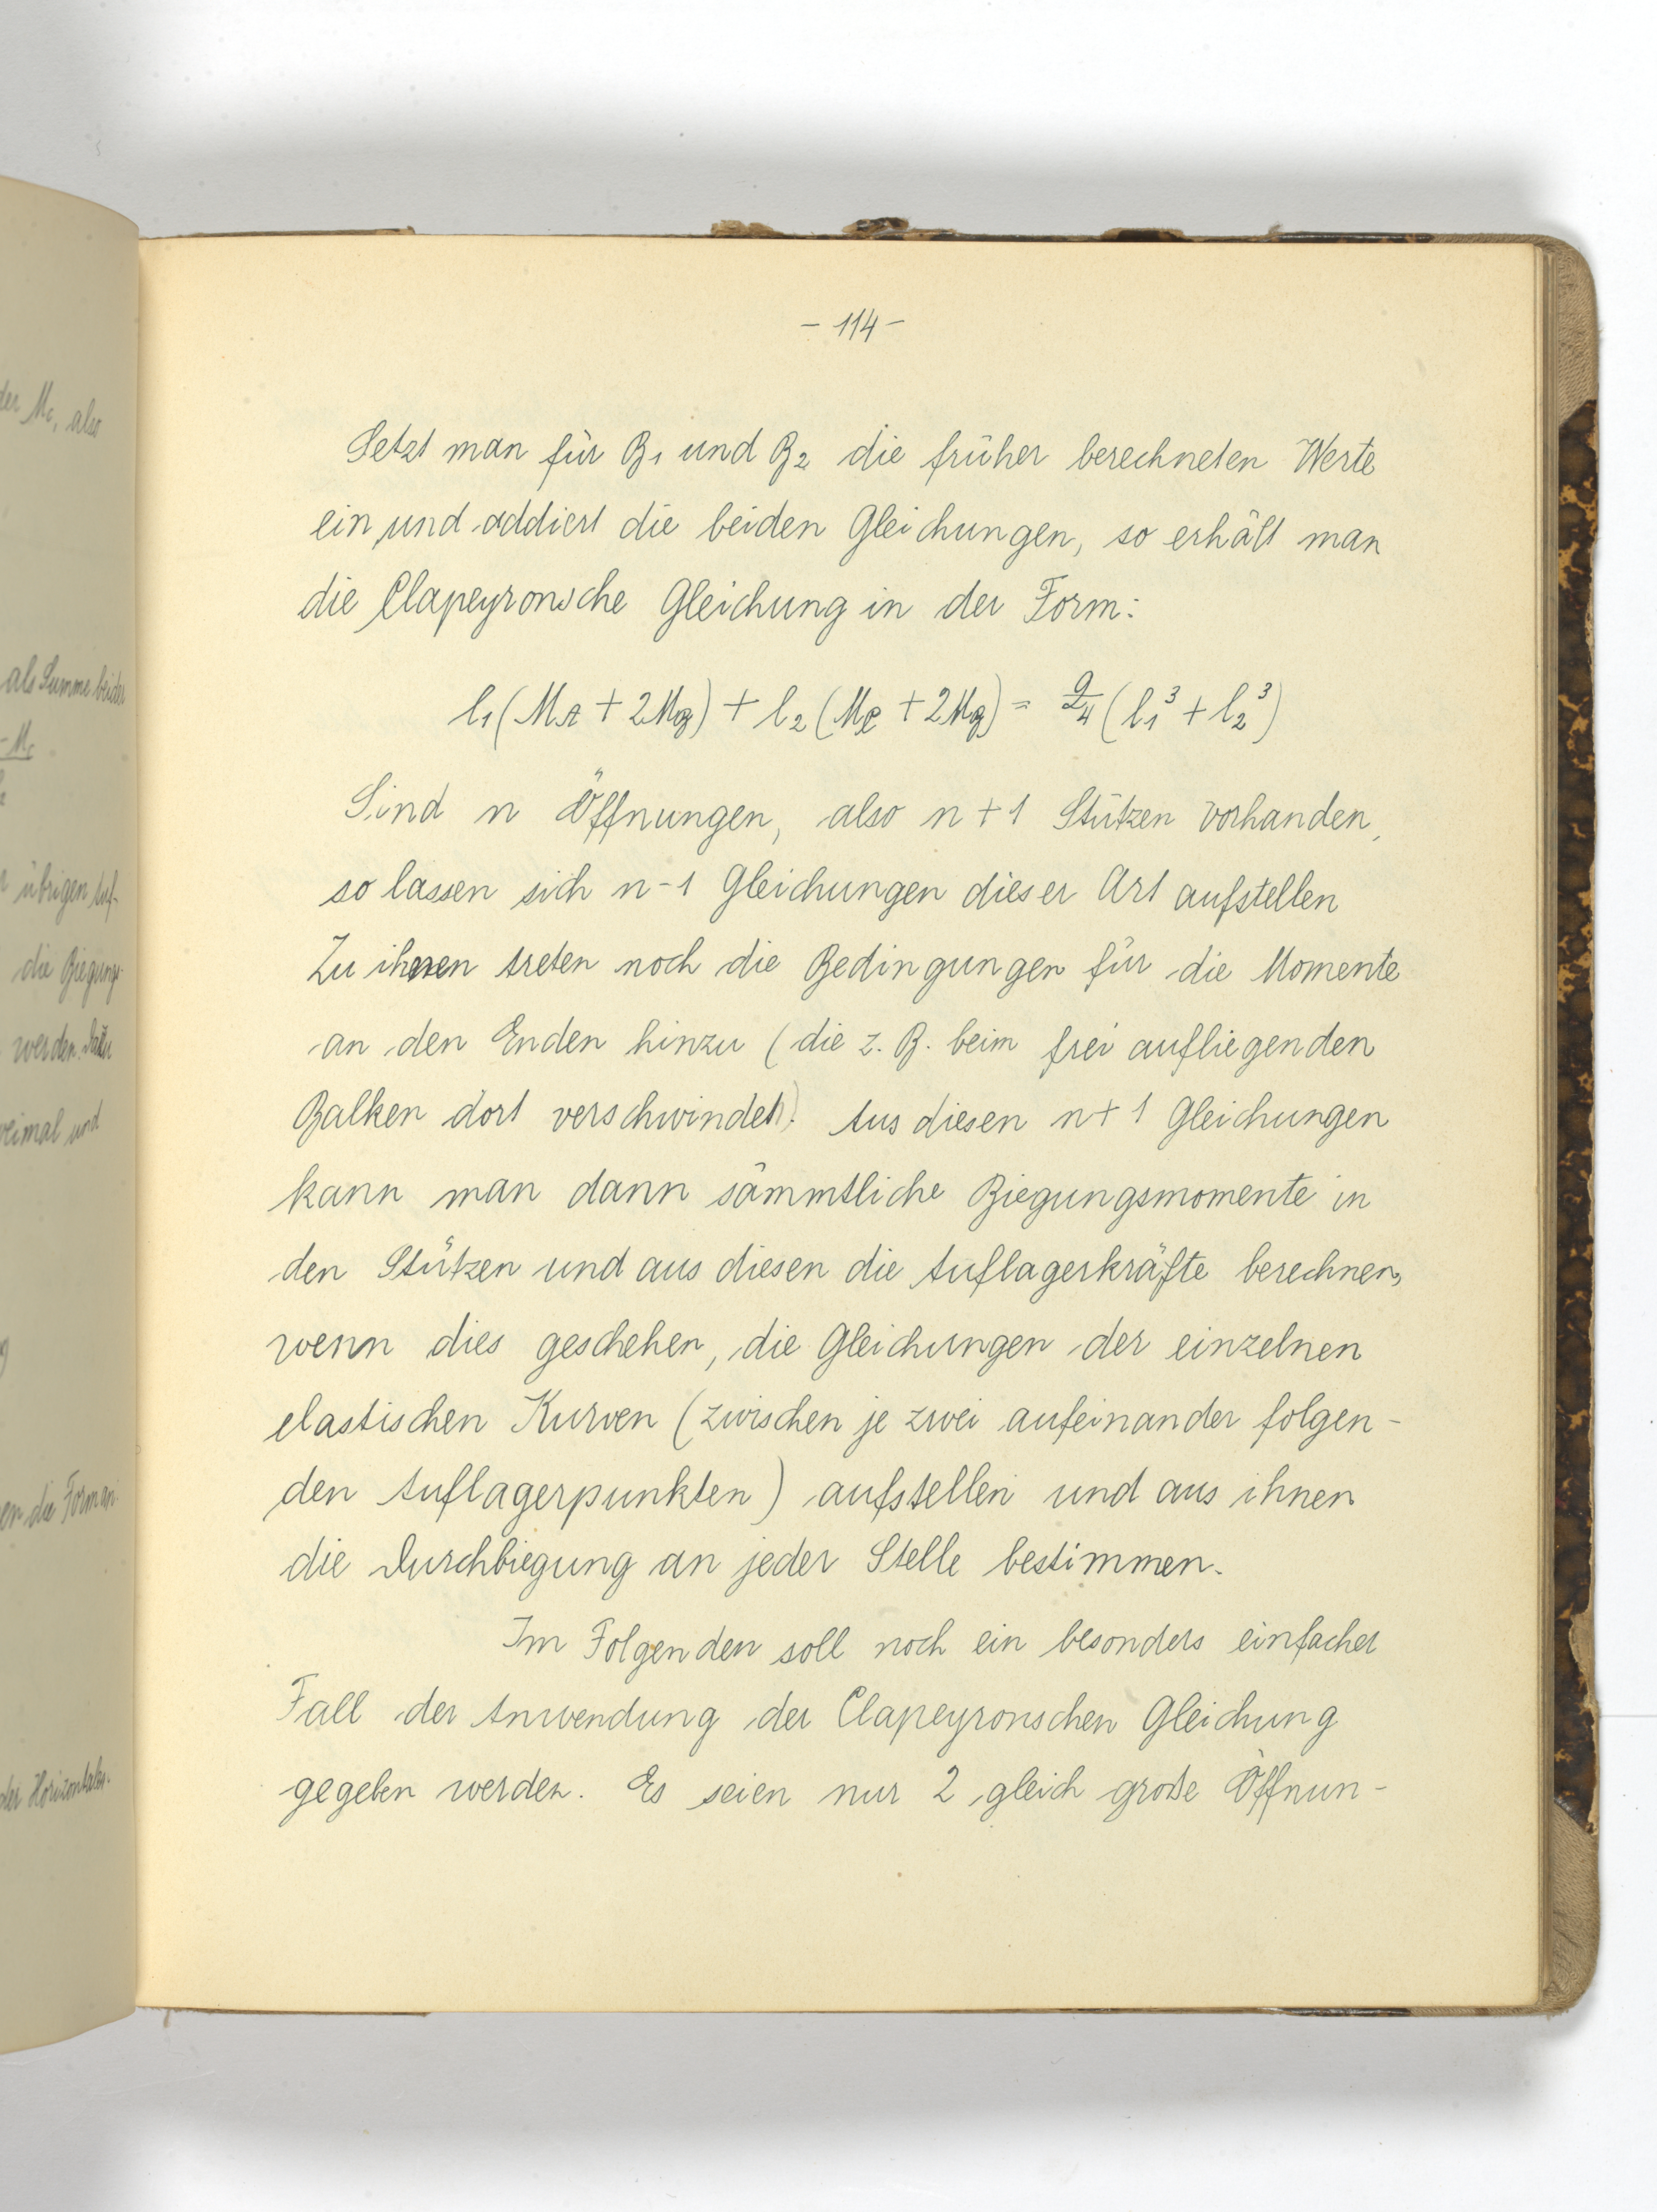 - 114 -
Setzt man für B₁ und B₂ die früher berechneten Werte
ein und addiert die beiden Gleichungen, so erhält man
die Clapeyronsche Gleichung in der Form:
l₁(M_A + 2M_B) + l₂(M_C + 2M_B) = q/4 (l₁³ + l₂³)
Sind n Öffnungen, also n+1 Stützen vorhanden,
so lassen sich n-1 Gleichungen dieser Art aufstellen
Zu ihnen treten noch die Bedingungen für die Momente
an den Enden hinzu (die z. B. beim frei aufliegenden
Balken dort verschwinden). Aus diesen n+1 Gleichungen
kann man dann sämmtliche Biegungsmomente in
den Stützen und aus diesen die Auflagerkräfte berechnen,
wenn dies geschehen, die Gleichungen der einzelnen
elastischen Kurven (zwischen je zwei aufeinander folgen-
den Auflagerpunkten) aufstellen und aus ihnen
die Durchbiegung an jeder Stelle bestimmen.
Im Folgenden soll noch ein besonders einfacher
Fall der Anwendung der Clapeyronschen Gleichung
gegeben werden. Es seien nur 2 gleich große Öffnun-
der Mc, also
als Summe beider
- Mc
übrigen Auf-
die Biegungs-
werden. Dazu
und
die Form an
der Horizontalen.